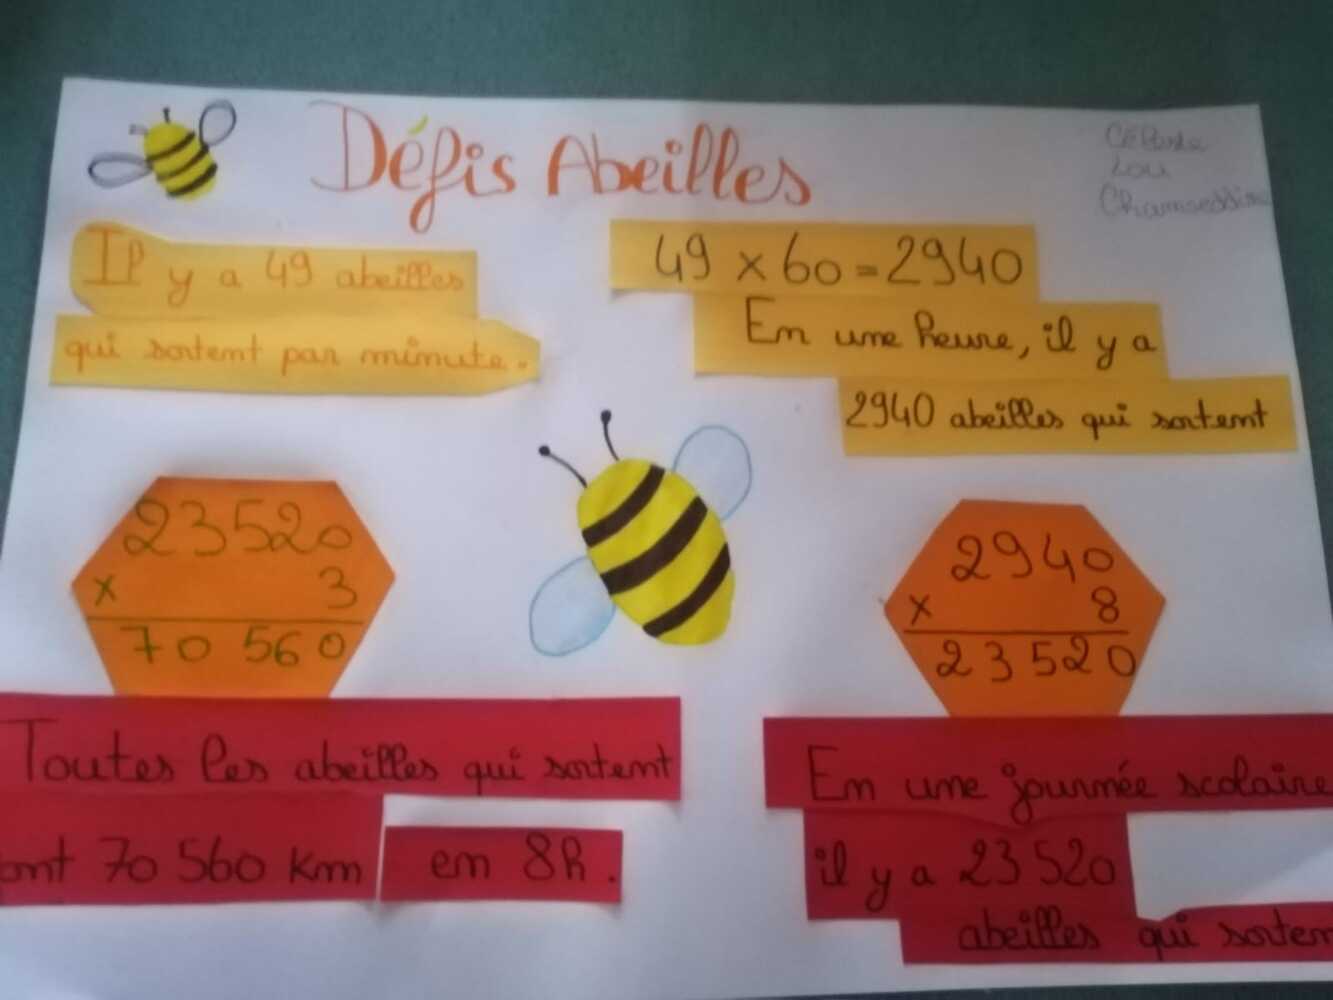 Défis Abeilles
Lou
Chamseddine
Il y a 49 abeilles
qui sortent par minute.
49 x 60 = 2940
En une heure, il y a
2940 abeilles qui sortent
23520
x 3
70 560
2940
x 8
23520
Toutes les abeilles qui sortent
font 70 560 km en 8h.
En une journée scolaire
il y a 23 520
abeilles qui sorten